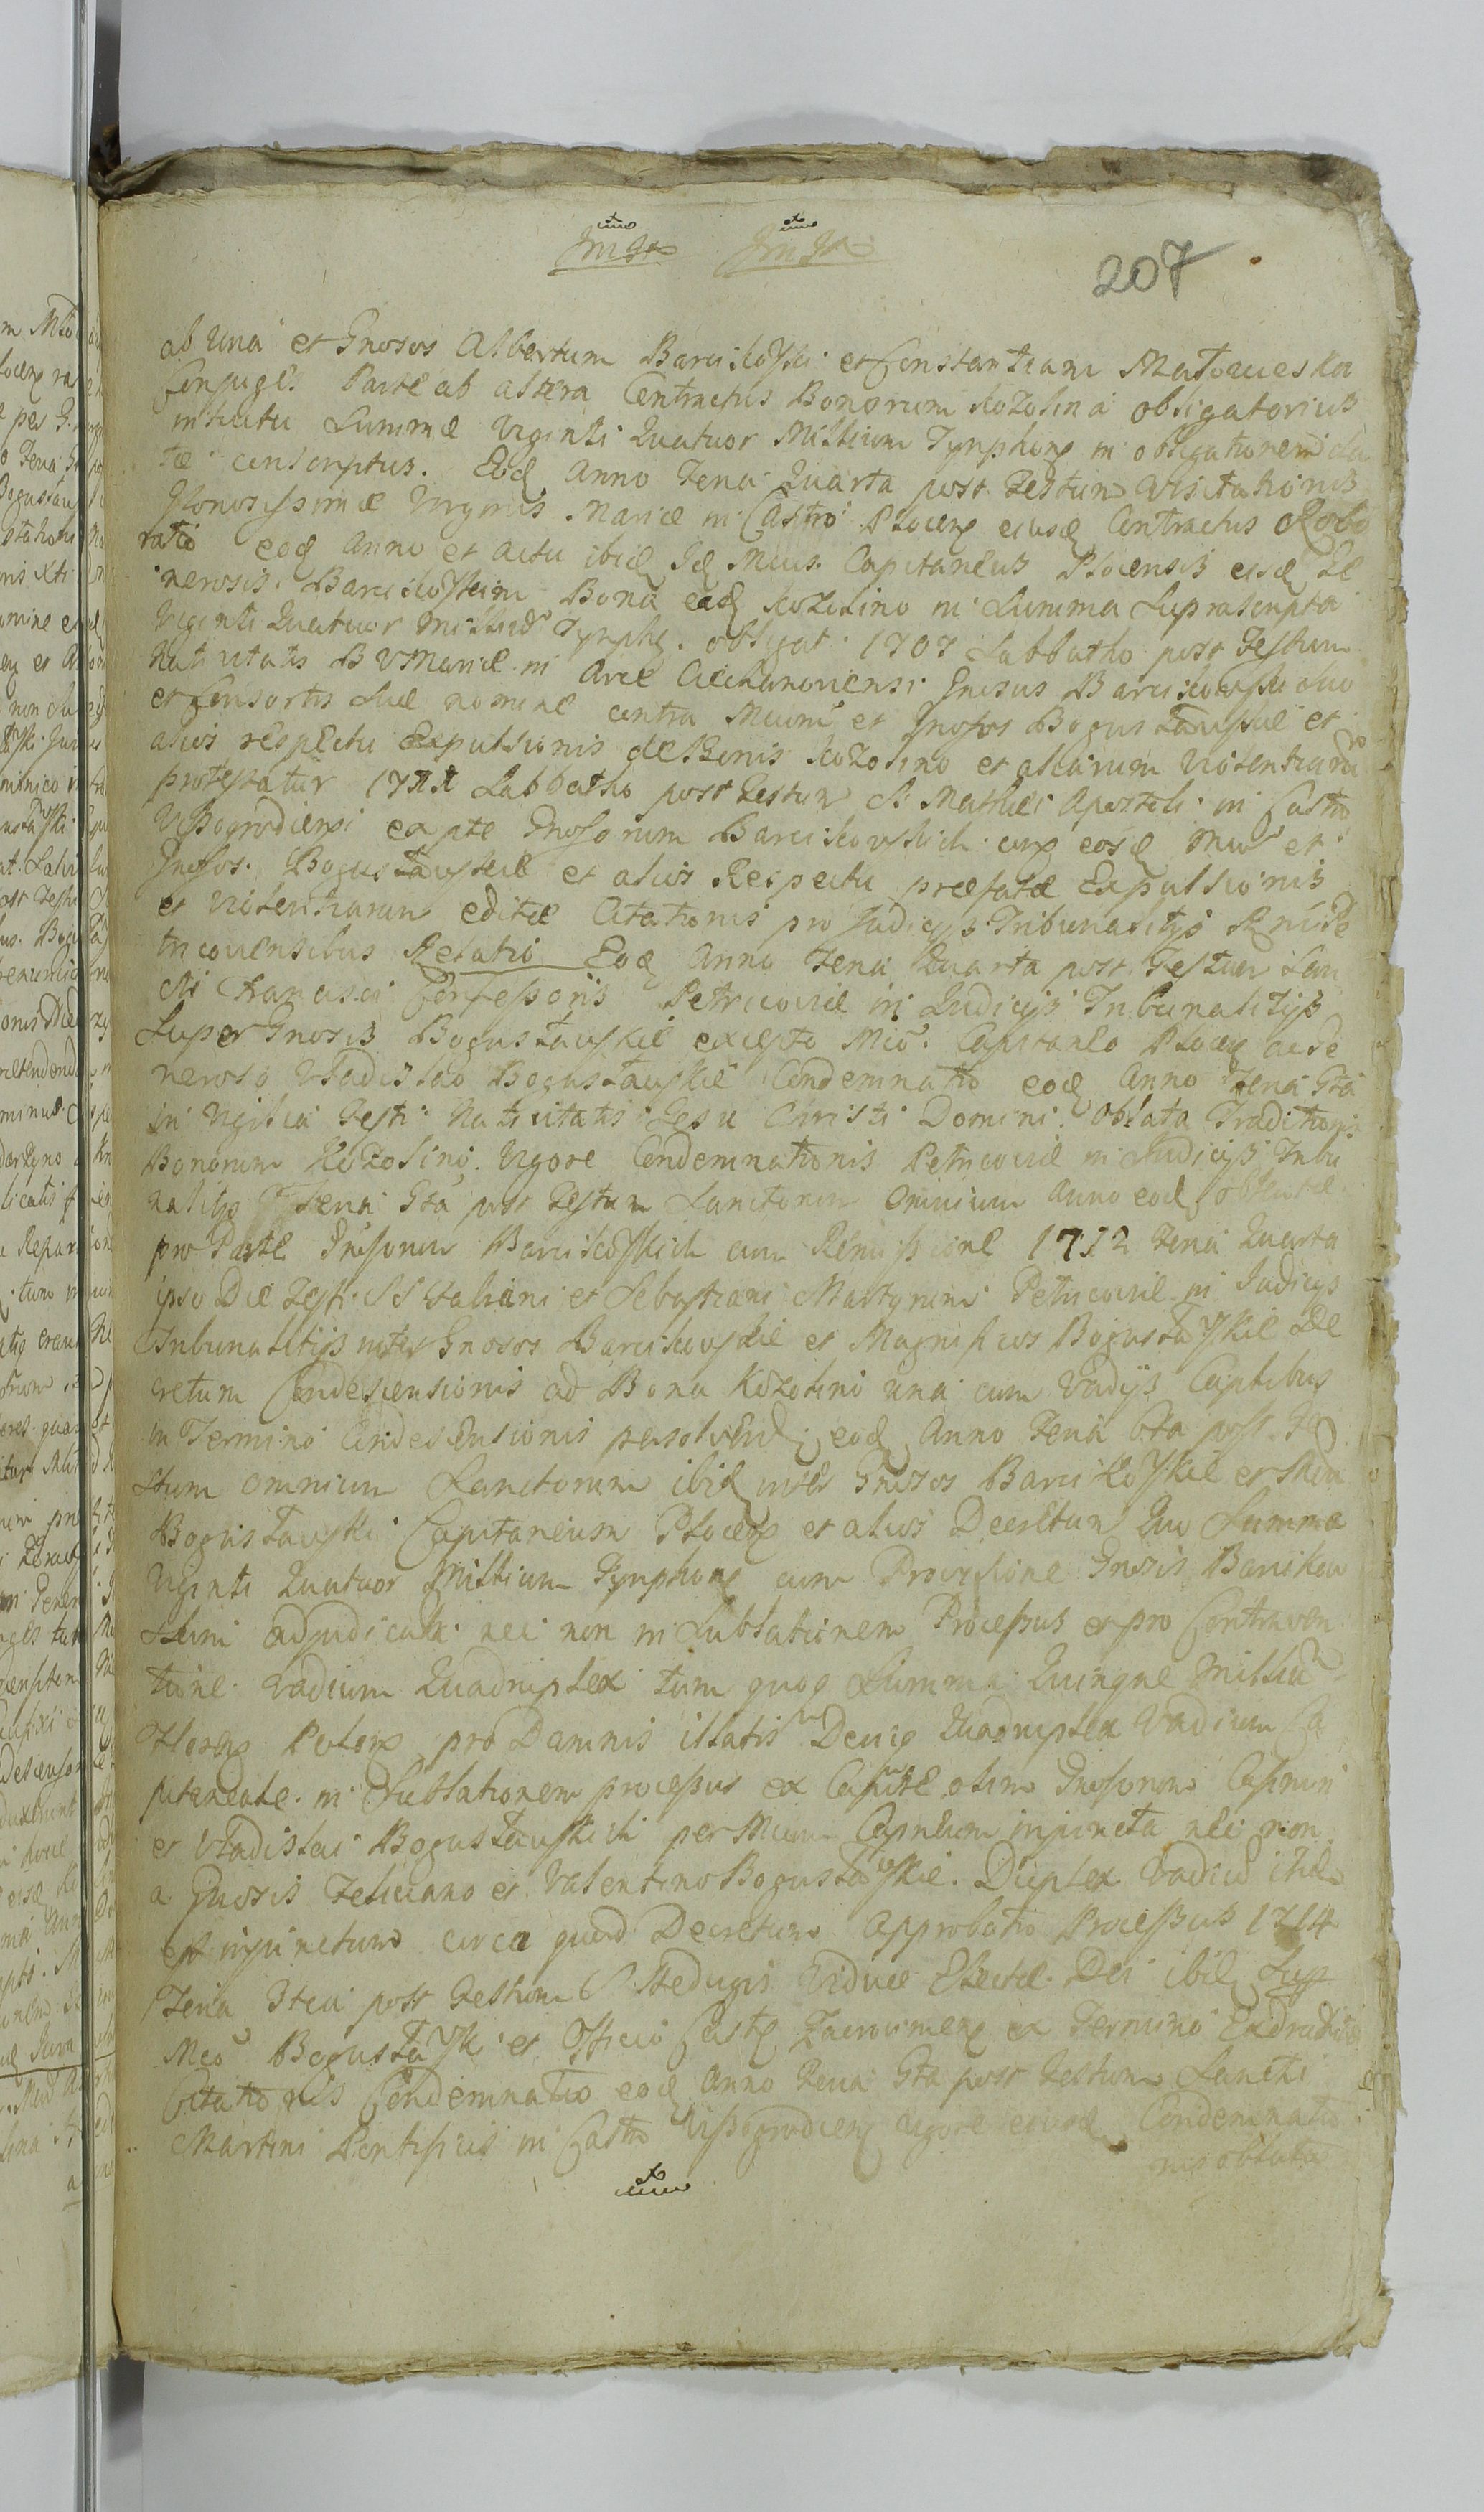 207
ab una et Gnosos Albertum Barcikoski et Constantiam
Conjuges Parte ab altera Contractus Bonorum Kozolina obligatorius
intuitu Summæ Viginti Quatuor Millium Tymphonũ in obligationem da
tæ conscriptus. Eod Anno Feria Quarta post Festum Visitationis
Gloriosissimæ Virginis Mariæ in Castro Plocenũ eiusd Contractus Robo
ratio eod Anno et actu ibid Id Mcus Capitaneus Plocensis eisd Ge
nerosis Barcikoskim Bona ead Kozolino in Summa suprascripta
Viginti Quatuor Milliũ Tymphũ. obligat 1707 Sabbatho post Festum
Nativitatis B V Mariæ in Arce Ciechanoviensi Gnosus Barcikowski suo
et Consortis suæ nomine contra Mcum et Gnosos Bogusławskie et
alios respectu Expulsionis de Bonis Kozolino et aliarum violentiarũ
protestatur 17 Sabbatho post Festum S. Mathæi Apostoli in Castro
Vissogrodiensi ex pte Gnosorum Barcikowskich cum eosd Mcũ et
Gnosos. Bogusławskie et alios Respectu præfatæ Expulsionis
et violentiarum editæ Citationis pro Judicijs Tribunalitijs Rni Pe
tricoviensibus Relatio Eod Anno Feria Quarta post Festum San
cti Francisci Confessoris Petricoviæ in Judicijs Tribunalitijs
Super Gnosis Bogusławskie excepto Mco. Capitaneo Plocenũ ac Ge
neroso Vladislao Bogusławskie Condemnatio eod Anno Feria 6ta
in Vigilia Festi Nativitatis Jesu Christi Domini. Oblata Traditionis
Bonorum Kozolino. Vigore Condemnationis Petricoviæ in Judicijs Tribu
nalitijs Feria 6ta post Festum Sanctorum Omnium Anno eod obtentæ
pro Parte Gnosorum Barcikoskich cum Remissione 1712 Feria Quarta
ipso Die Festi SS Fabiani et Sebastiani Martyrum Petricoviæ in Judicijs
Tribunalitijs inter Gnosos Barcikowskie et Magnificos Bogusławskie De
cretum Condescensionis ad Bona Kozolino una cum Vadijs Captibus
in Termino Condescensionis persolvend. eod Anno Feria 6ta post Fe
stum Omnium Sanctorum ibid inter Gnosos Barcikoskie et Mcum
Bogusławski Capitaneum Plocenũ et alios Decretum Quo Summa
Viginti Quatuor Millium Tymphonũ cum Provisione Gnosis Barcikow
skim adjudicata nec non in Sublationem Processus et pro Contraven
tione vadium Quadruplex tum quoq Summa Quinque Milliũ
Florenũ Polonũ pro Damnis illatis Deniq Quadruplex Vadium Ca
pitaneale in Sublationem processus ex Capite olim Gnosorum Casimiri
et Vladislai Bogusławskich per Mcum Capneum injuncta nec non
a Gnosis Feliciano et Valentino Bogusławskie. Duplex Vadium itid
est injunctum circa quod Decretum Approbatio Processus 1714
Feria 3tia post Festum S Hedvigis Viduæ Electæ Dei ibid Sup
Mco Bogusławski et Officio Castr Zacrocimenũ ex Termino
Citationis Condemnatio eod Anno Feria 6ta post Festum Sancti
Martini Pontificis in Castro Vissogrodienũ vigore eiusd Condemnatio
nis oblata